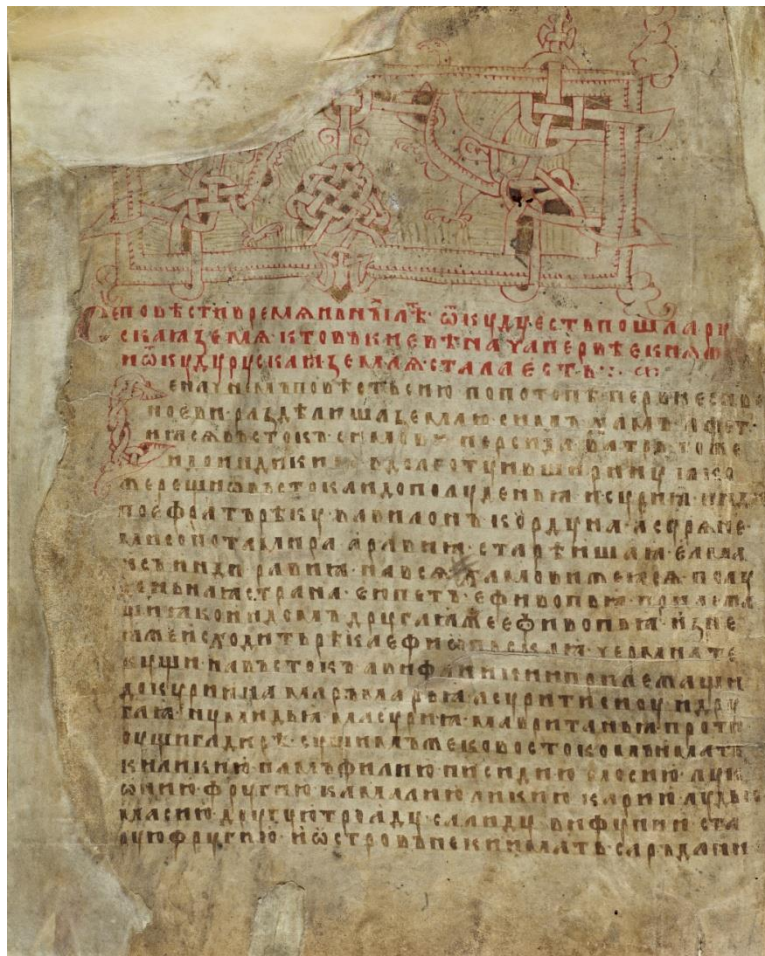 Се повѣсти времѧньнꙑⷯ лѣⷮ ѿкуду єсть пошла ру
скаꙗ земѧ кто въ києвѣ нача первѣє кнѧⷤ
и ѿкуду рускаꙗ землѧ стала єсть
се начнемъ повѣсть сию по потопѣ первиє с͠нве
ноєви раздѣлиша землю симъ хамъ афет
и ꙗсѧ въстокъ симови персида ватрь тоже
и до индикиꙗ в долготу и въ ширину ꙗко
же рещи ѿ въстока и до полуденьꙗ и суриꙗ инди
по єфратъ рѣку вавилонъ кордуна асурѧне
месопотамира аравиꙗ старѣишаꙗ єлмаи
съ инди равиꙗ на всѧ
деньꙗꙗ страна єюпетъ єфивопьꙗ прилежа
щиꙗ ко индомъ другаꙗ же єфивопьꙗ изъ неꙗ
же исходить рѣка єфиѡпьскаꙗ чермна те
кущи на въстокъ
до куриниꙗ мармарьꙗ асурити дру
гаꙗ нумидьꙗ масуриꙗ мавританьꙗ проти
ву сущи гадирѣ сущимъ же ко востокомъ имать
киликию памъфилию писидию мосию лука
ѡнию фругию камалию ликию карию лудью
масию другую троаду солиду вифунию ста
рую фругию и ѡстровъ неки имать саръдани